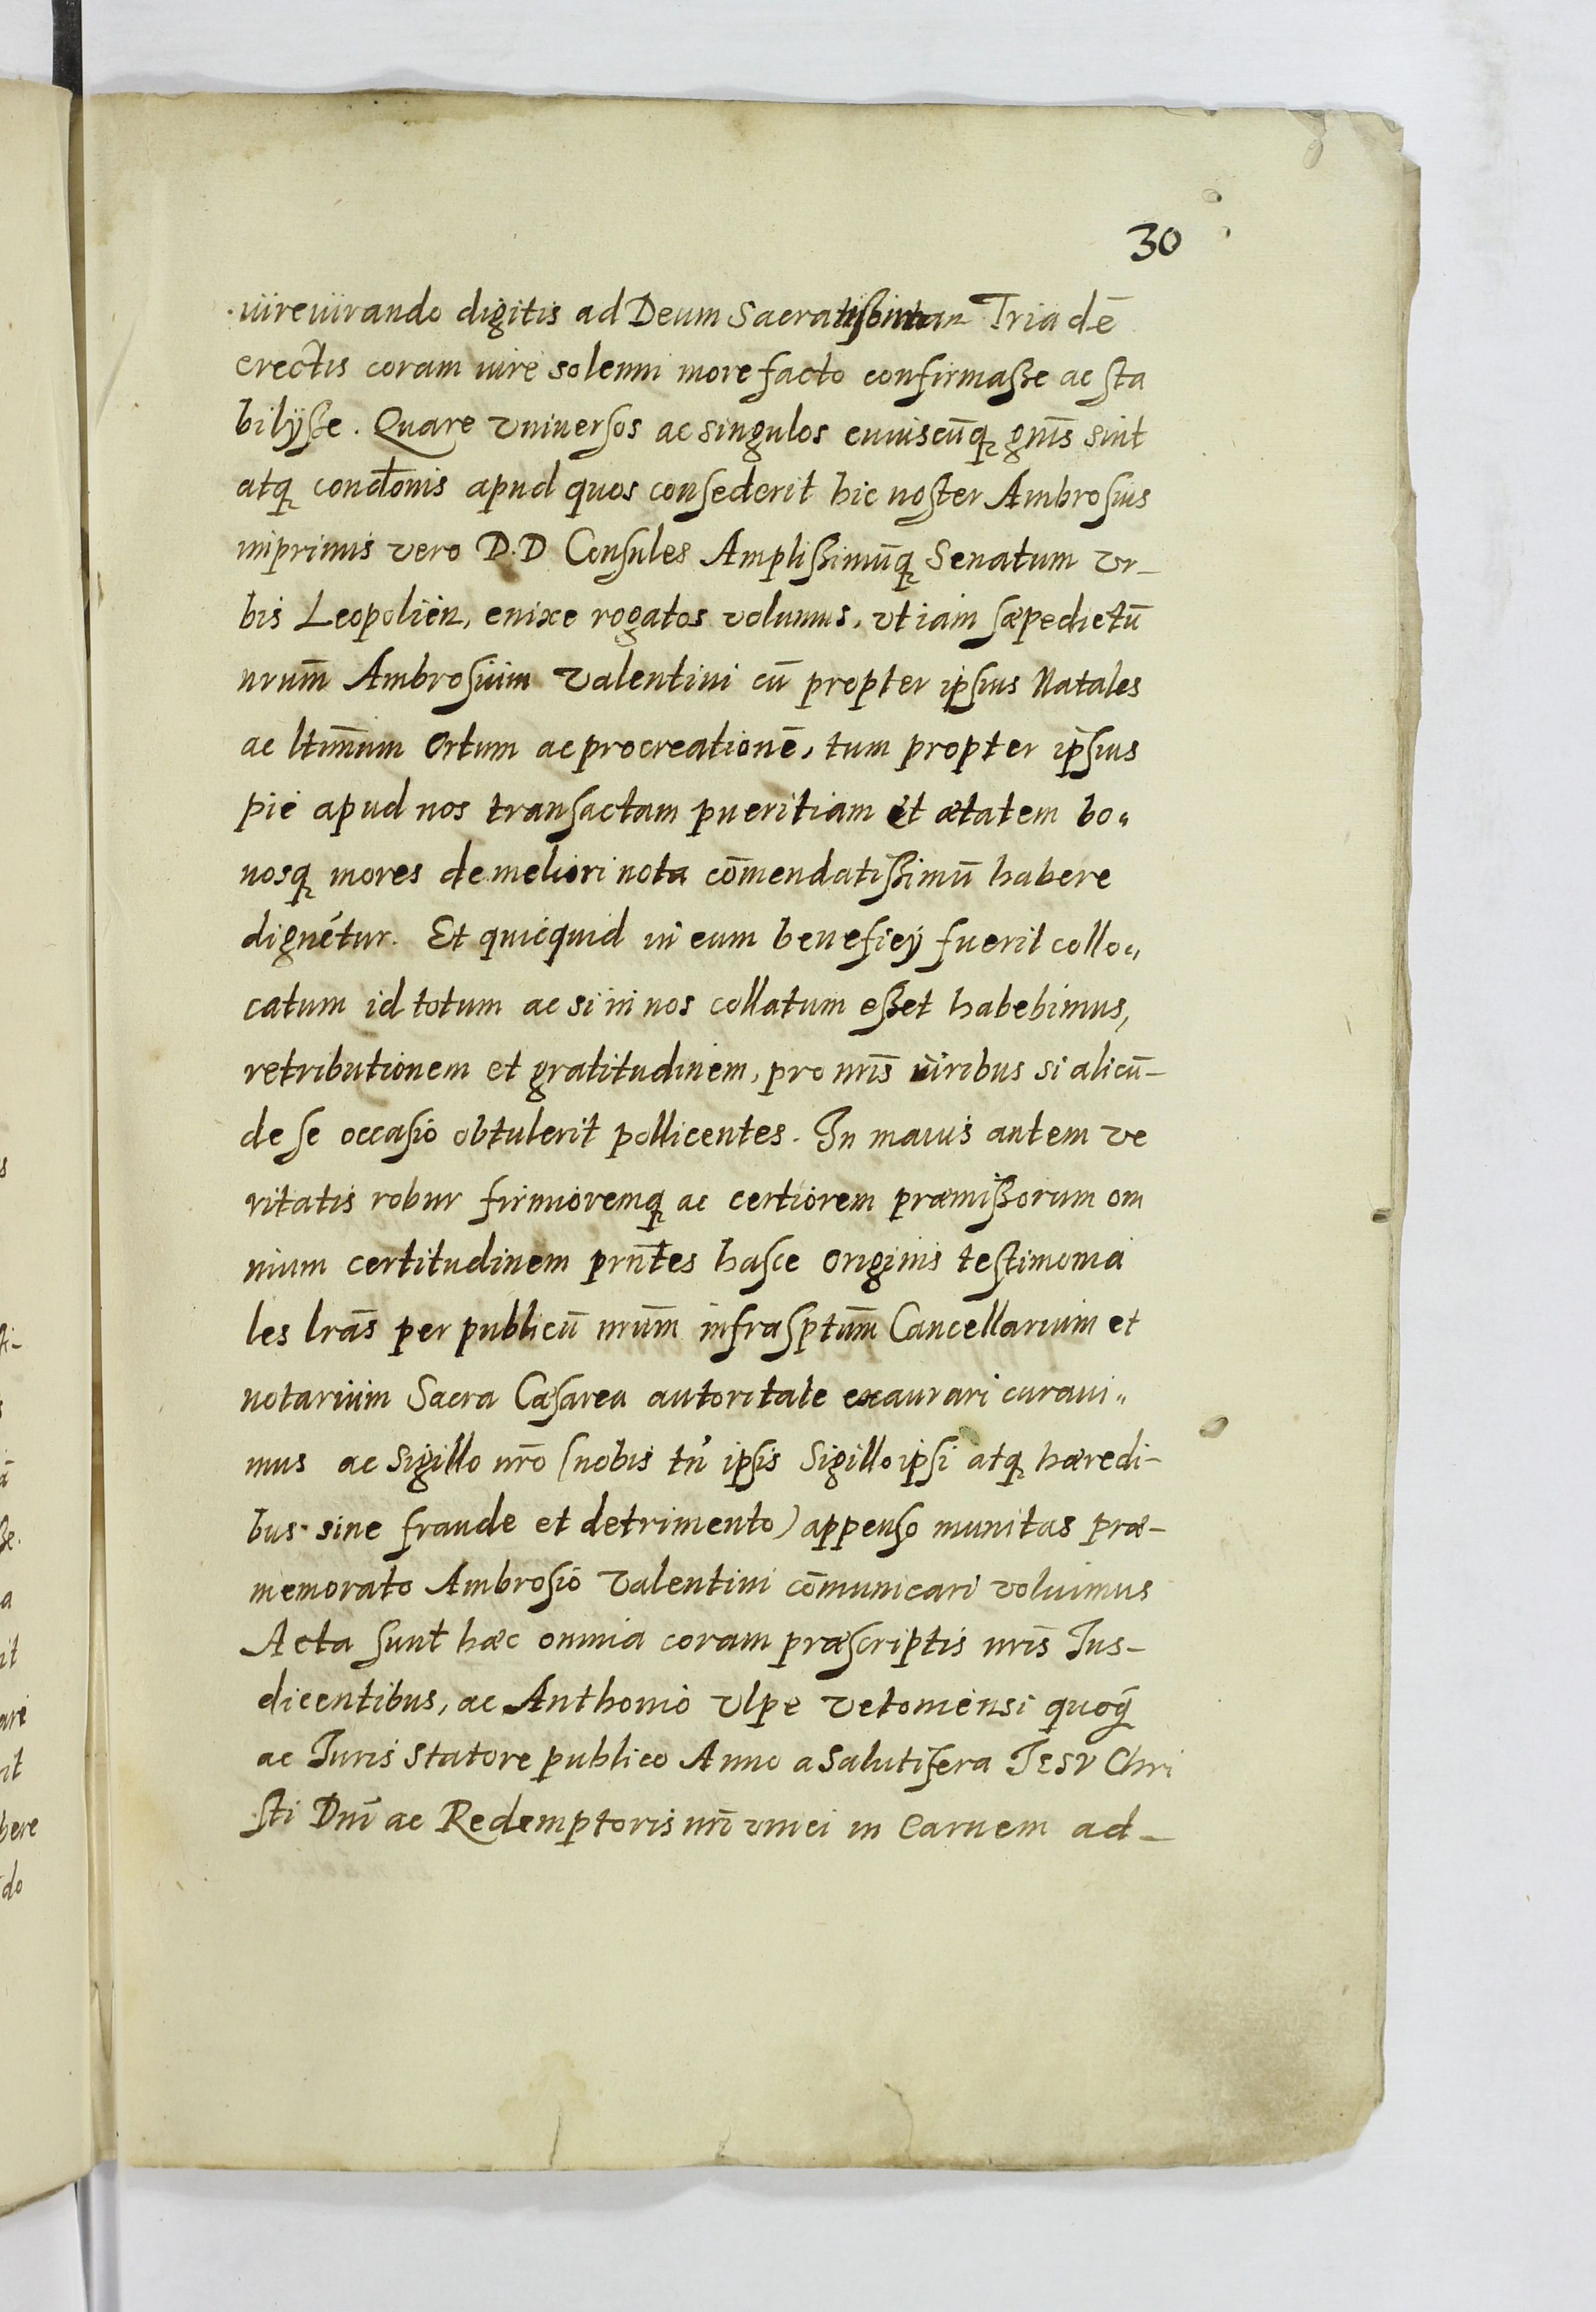 30
iureiurando digitis ad Deum Sacratissimam Triadē
erectis coram iure solenni more facto confirmaße ac sta
bilÿße. Quare Vniuersos ac singulos cuiuscūq gnīs sint
atq condōnis apud quos consederit hic noster Ambrosius
inprimis vero D.D Consules Amplißimūq Senatum vr-
bis Leopolien, enixe rogatos volumus, vt iam sæpedictū
nrum̄ Ambrosium Valentini cū propter ipsius Natales
ac ltim̄um Ortum ac procreationē, tum propter ipsius
pie apud nos transactam pueritiam et ætatem bo„
nosq mores de meliori nota com̄endatißimū habere
dignētur. Et quicquid in eum beneficÿ fuerit collo„
catum id totum ac si in nos collatum eßet habebimus,
retributionem et gratitudinem, pro nrīs viribus si alicū-
de se occasio obtulerit pollicentes. In maius autem ve
ritatis robur firmioremq ac certiorem præmißorum om
nium certitudinem prn̄tes hasce Originis testimonia
les lrās per publicū nrum̄ infrasptum̄ Cancellarium et
notarium Sacra Cæsarea autoritate exaurari curaui„
mus ac Sigillo nrō (nobis tn̄ ipsis Sigillo ipsi atq hæredi-
bus sine fraude et detrimento) appenso munitas præ-
memorato Ambrosio Valentini com̄unicari voluimus
Acta sunt hæc omnia coram præscriptis nrīs Ius-
dicentibus, ac Anthonio Vlpe Vetoniensi quoq
ac Iuris Statore publico Anno a Salutifera IESV Chri
sti Dnī ac Redemptoris nrī vnici in Carnem ad-